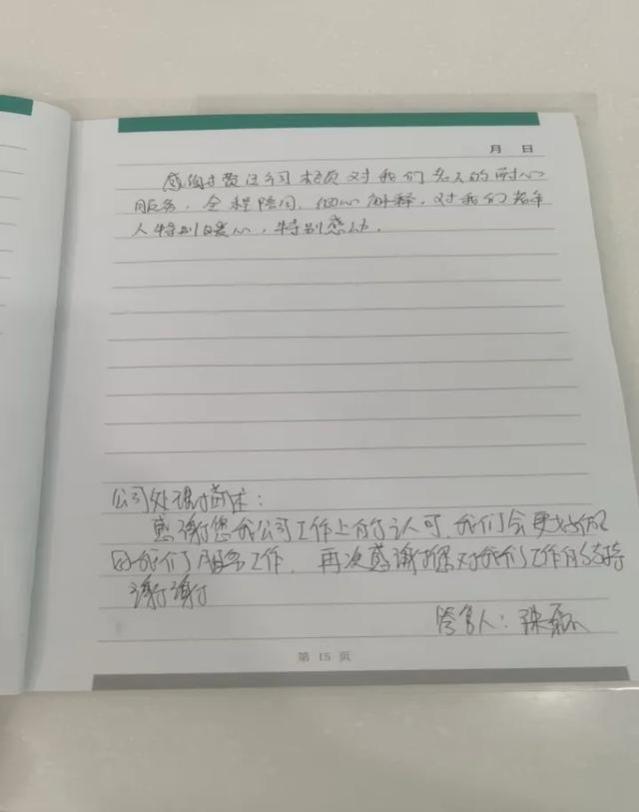 月 日
感谢 对我们老人的耐心
服务，全程陪同，细心解释，对我们老年
人特别暖心，特别感动．
公司处理 ：
感谢您 我公司工作上的认可，我们会更好的做
我们服务工作．再次感谢您对我们工作的支持
谢谢
管理人：
第 15 页